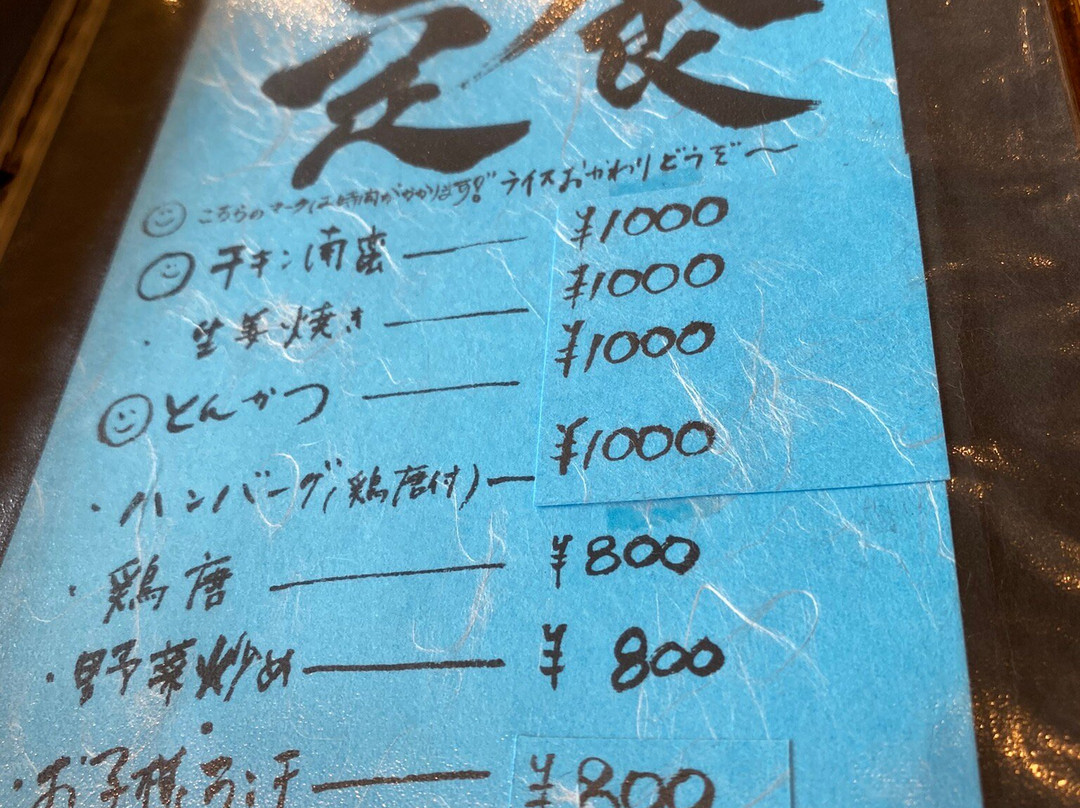 定食
こちらのマークは時間がかかります！ ライスおかわりどうぞ〜
チキン南蛮 ¥1000
・生姜焼き ¥1000
とんかつ ¥1000
・ハンバーグ(鶏唐付) ¥1000
・鶏唐 ¥800
・野菜炒め ¥800
・お子様ランチ ¥800